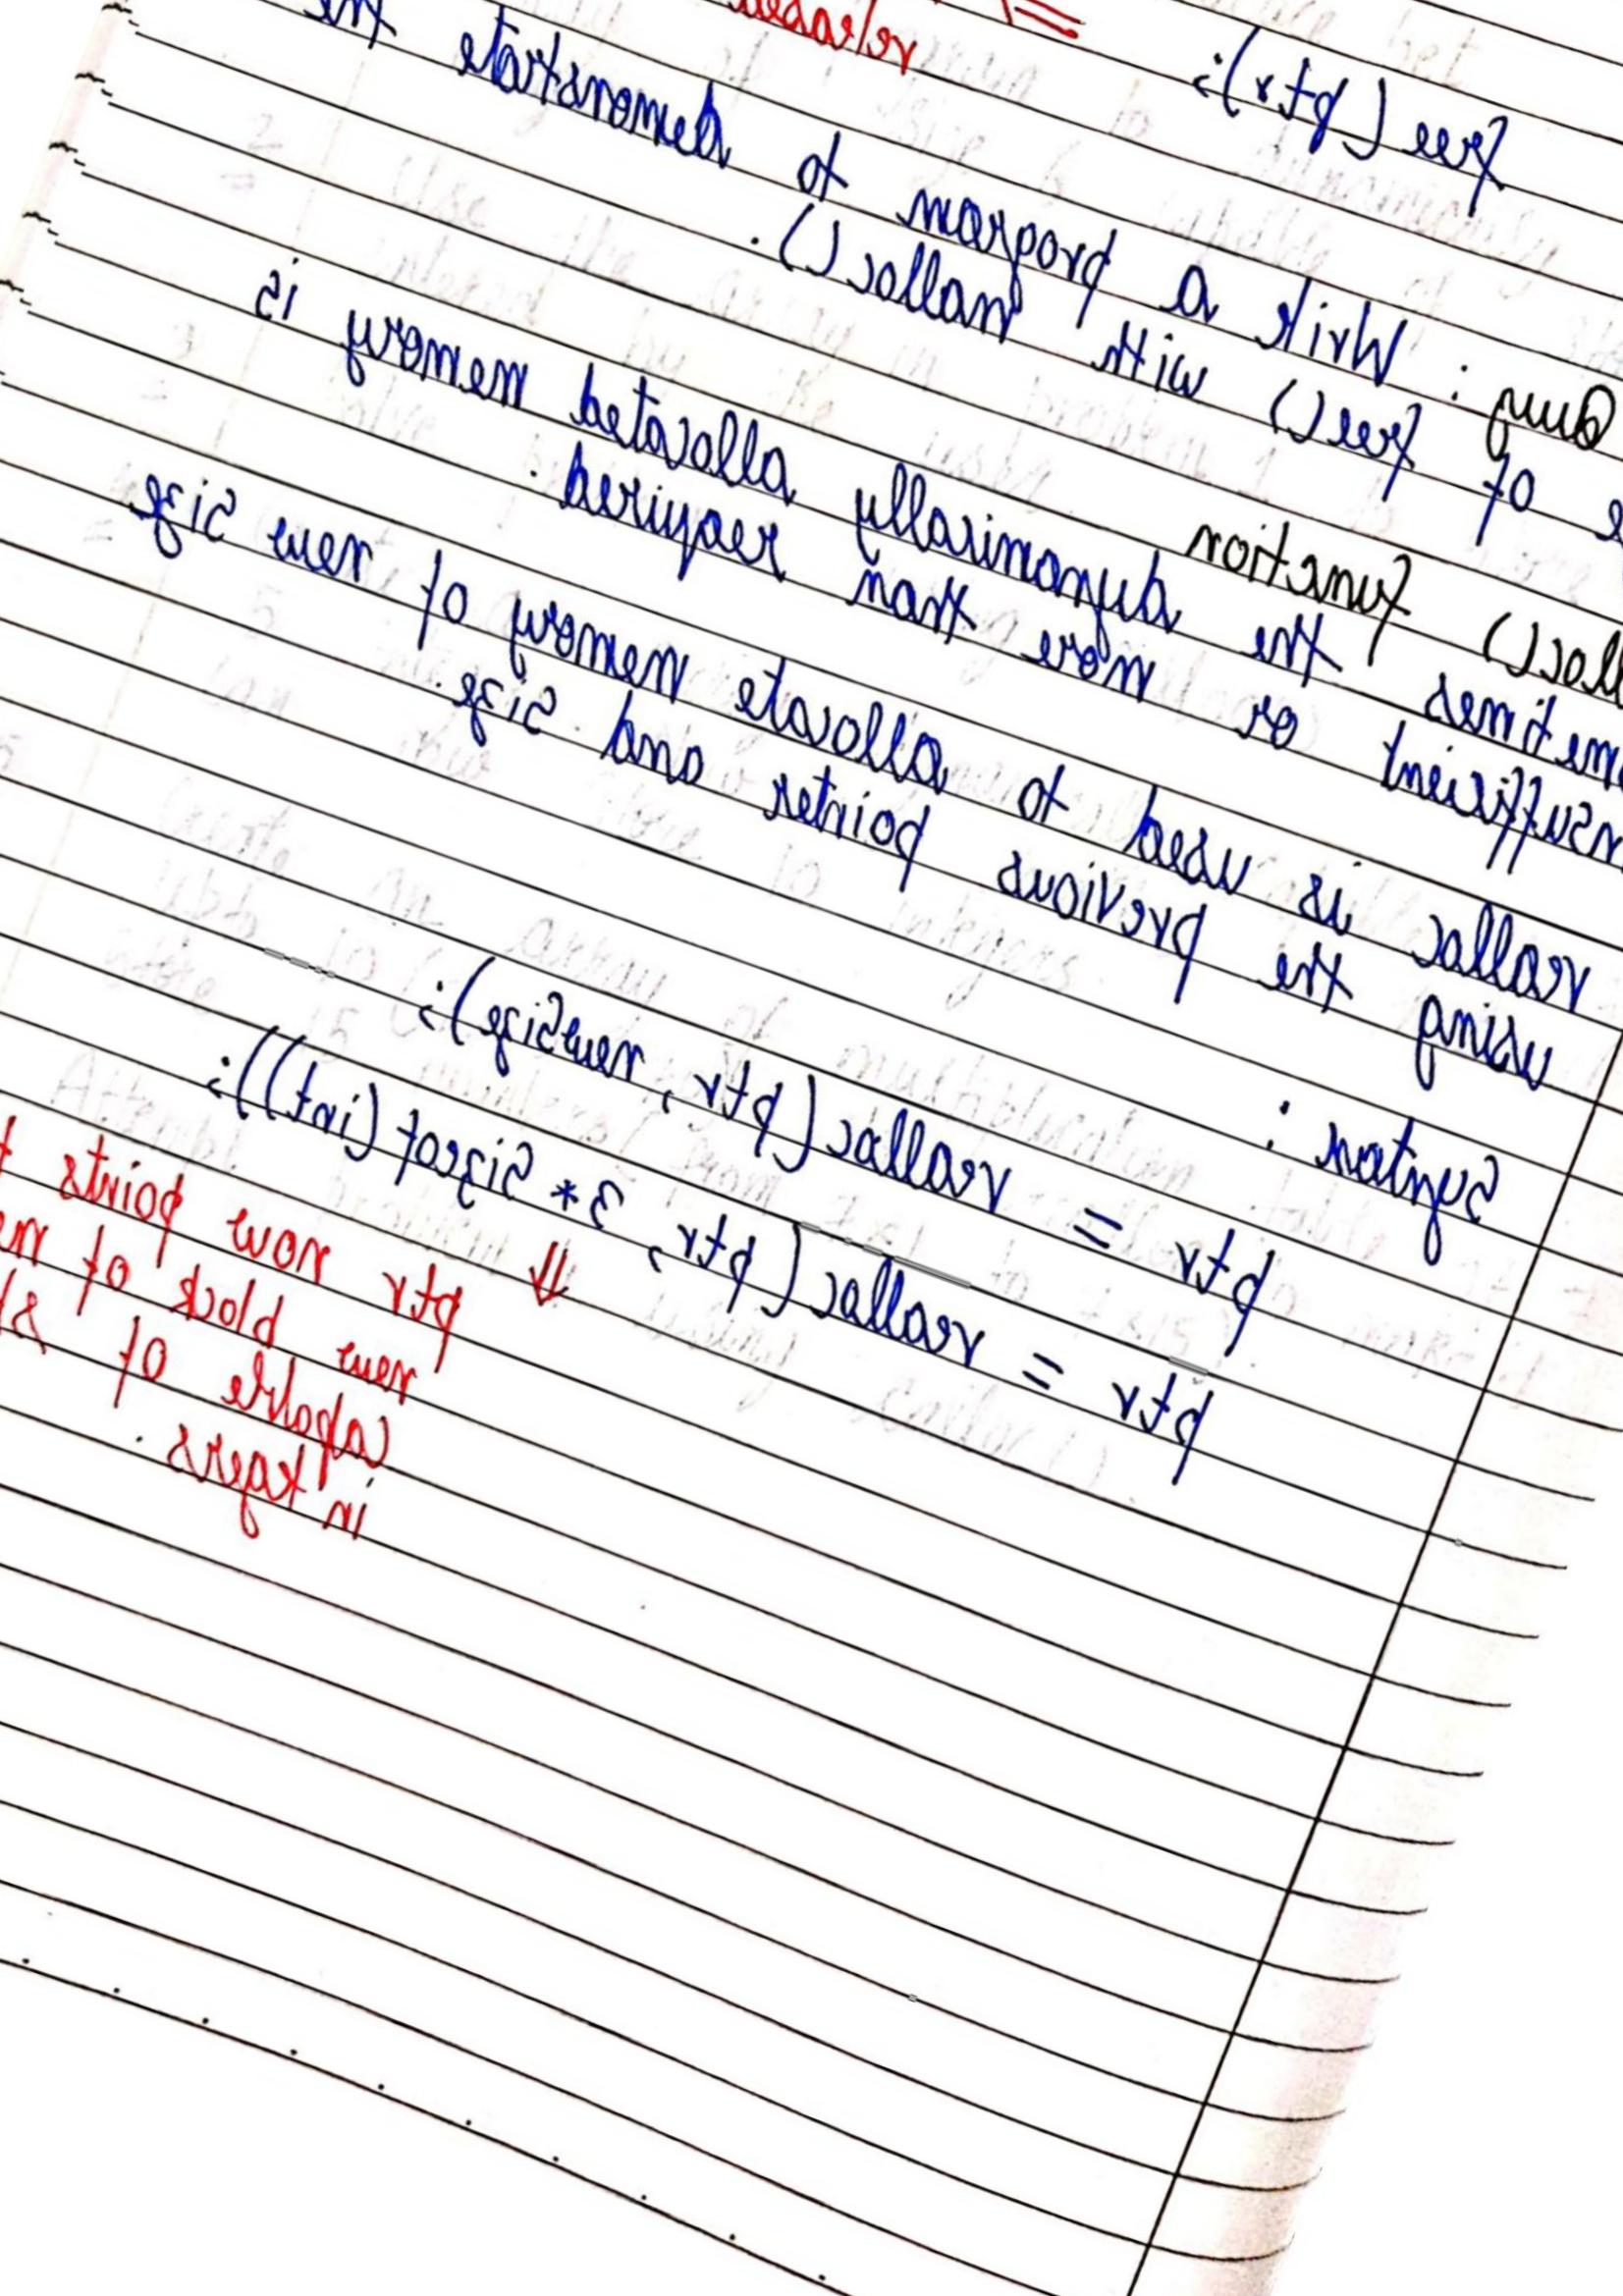 free(ptr); ⇒
released
Quy: Write a program to demonstrate the
e of free() with malloc().
lloc() function
metimes the dynamically allocated memory is
nsufficient or more than required.
realloc is used to allocate memory of new size
using the previous pointer and size.
Syntax:
ptr = realloc(ptr, newSize);
ptr = realloc(ptr, 3* Sizeof(int));
⇓ ptr now points t
new block of m
capable of s
integers.